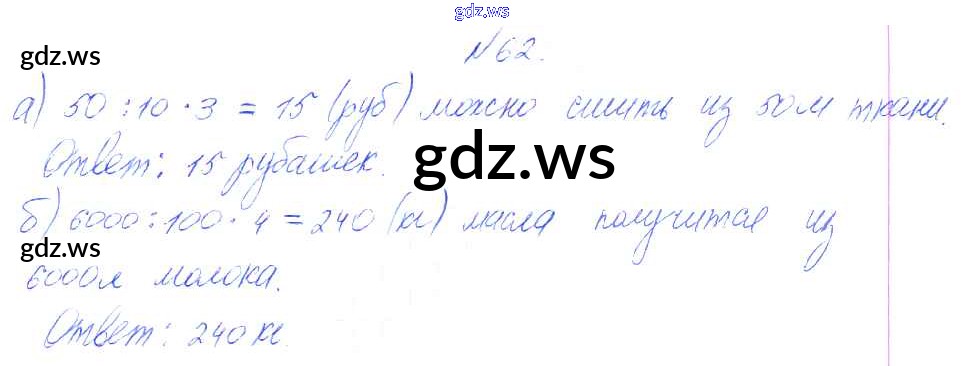 gdz.ws
gdz.ws
№62.
а) 50 : 10 · 3 = 15 (руб) можно сшить из 50м ткани.
Ответ: 15 рубашек.
gdz.ws
б) 6000 : 100 · 4 = 240 (кг) масла получится из
gdz.ws
6000л молока.
Ответ: 240 кг.